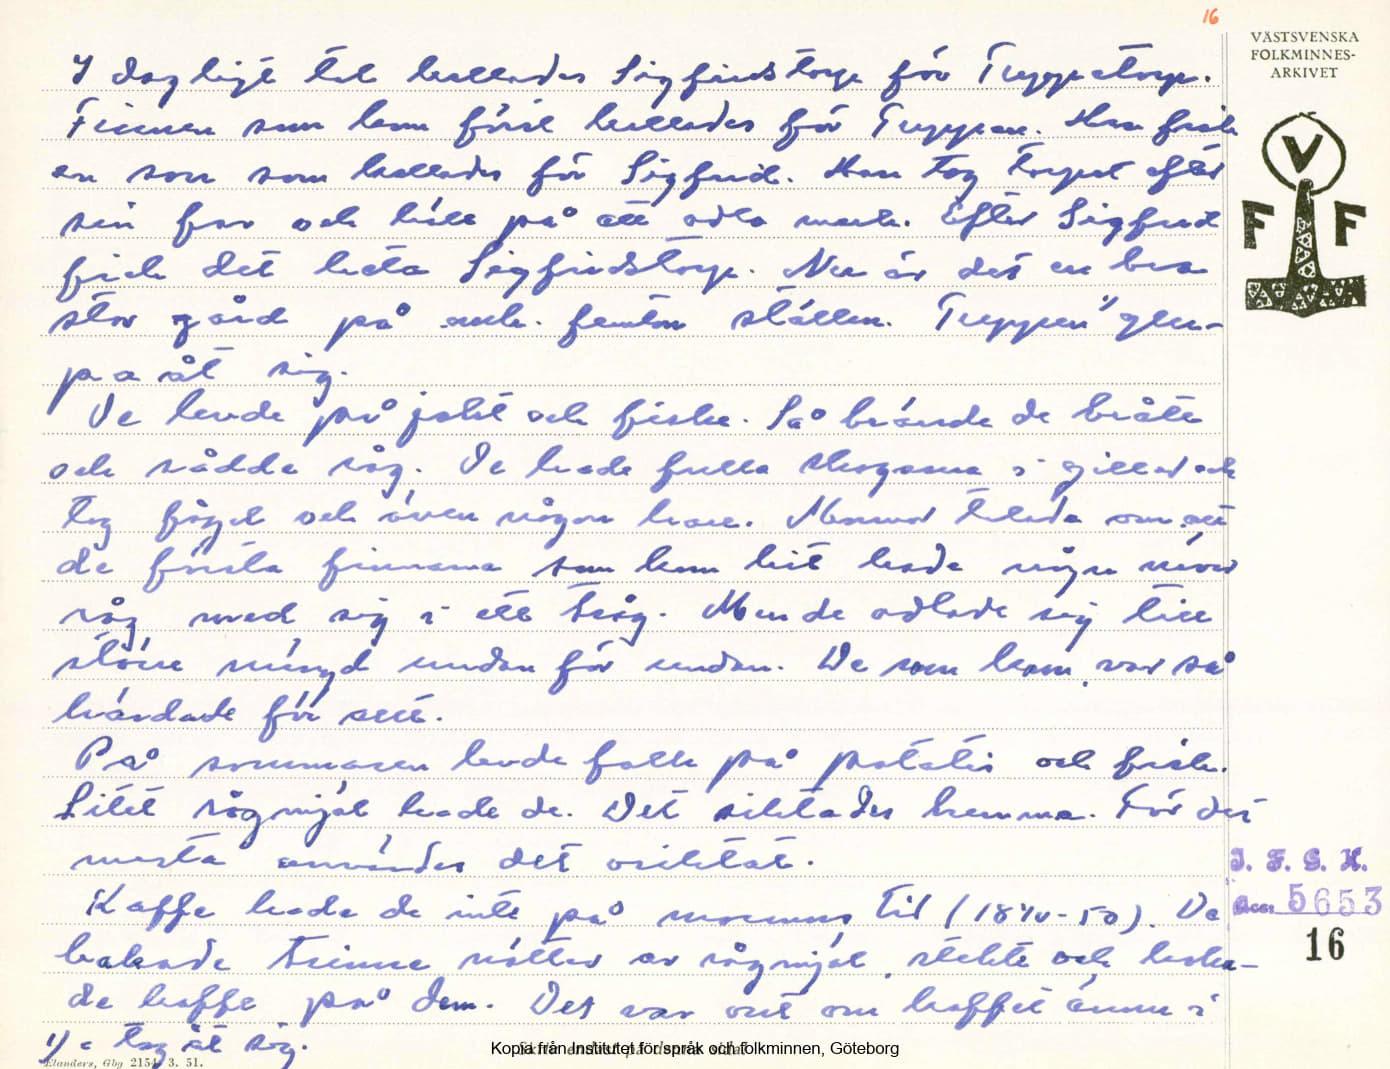 16
VÄSTSVENSKA
FOLKMINNES-
ARKIVET
V
F F
I dagligt tal kallades Sigfridstorp för Tuppetorp.
Finnen som kom först kallades för Tuppen. Han fick
en son som kallades för Sigfrid. Han tog torpet efter
sin far och höll på att odla mark. Efter Sigfrid
fick det heta Sigfridstorp. Nu är det en bra
stor gård på ack. femton ställen. Tuppen 1) glu-
pa åt sig.
De levde på jakt och fiske. Så brände de bråte
och sådde råg. De hade fulla skogarna i giller och
tog fågel och även någon hare. Mormor talada om att
de första finnarna som kom hit hade några näver
råg med sig i ett tråg. Men de odlade sig till
större mängd undan för undan. De som kom, var så
härdade för allt.
På sommaren levde folk på potatis och fisk.
Litet rågmjöl hade de. Det siktades hemma. För det
mesta användes det osiktat.
Kaffe hade de inte på mormors tid (1840-50). De
bakade tunna nötter av rågmjöl, stekte och koka-
de kaffe på dem. Det var ont om kaffet ännu i
1) = tog åt sig.
I. F. G. H.
Acc. 5653
16
Elanders, Gbg 2154. 3. 51.
Kopia från Institutet för språk och folkminnen, Göteborg